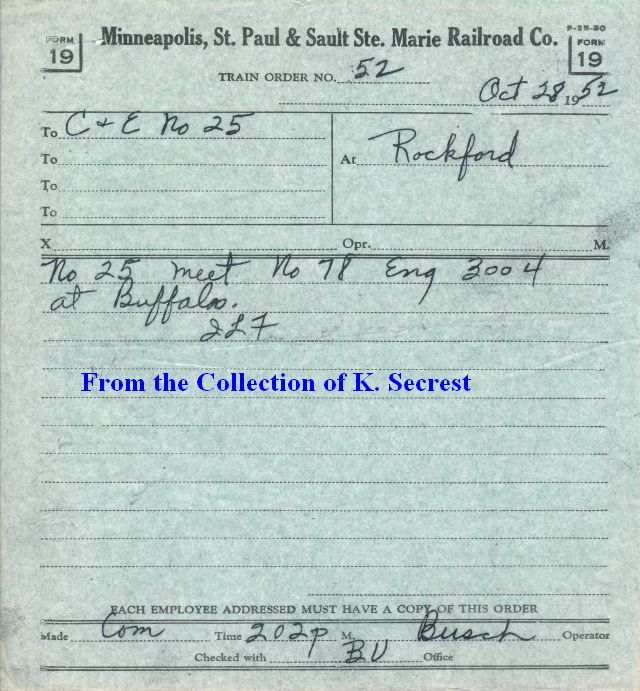 FORM 19
Minneapolis, St. Paul & Sault Ste. Marie Railroad Co.
9-25-50
FORM 19
TRAIN ORDER NO. 52
Oct 28 1952
To C & E No 25
To
To
To
At Rockford
X Opr. M.
No 25 meet No 78 Eng 3004
at Buffalo.
From the Collection of K. Secrest
EACH EMPLOYEE ADDRESSED MUST HAVE A COPY OF THIS ORDER
Made Com Time 202p M. Busch Operator
Checked with BU Office